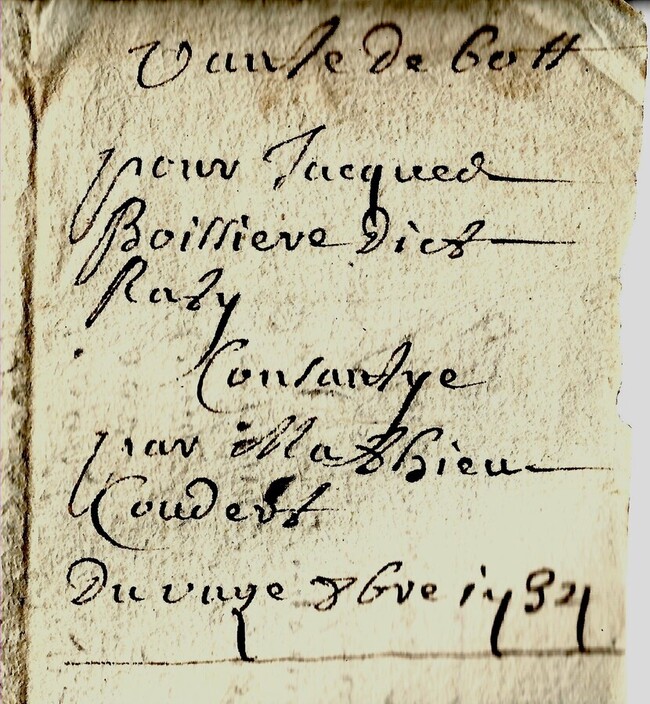 Vante de bott
pour Jacques
Boissiere dict
Raty
Consantye
par Mathieu
Coudert
Du unye 8bre 1734